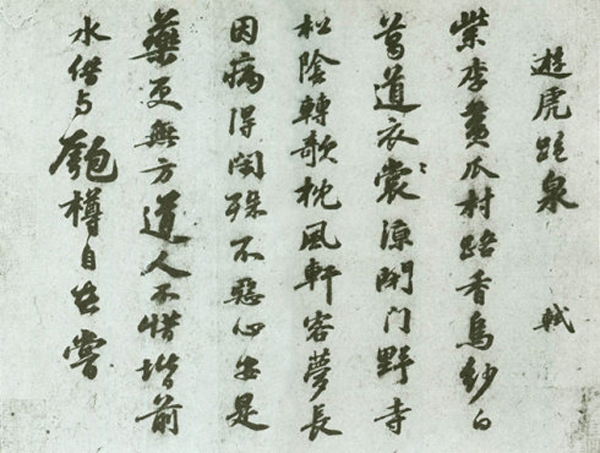 遊虎跑泉 軾
紫李黃瓜村路香烏紗白
葛道衣裳涼閉門野寺
松陰轉欹枕風軒客夢長
因病得閑殊不惡心安是
藥更無方道人不惜堦前
水借与匏樽自在嘗